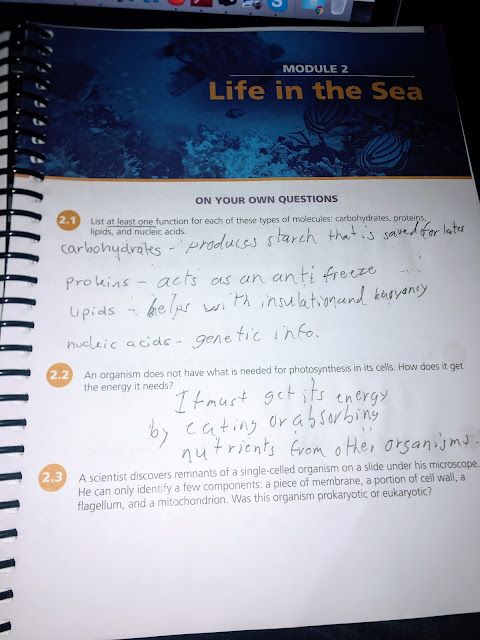 MODULE 2
Life in the Sea
ON YOUR OWN QUESTIONS
2.1 List at least one function for each of these types of molecules: carbohydrates, proteins,
lipids, and nucleic acids.
carbohydrates - produces starch that is saved for later
proteins - acts as an anti freeze
lipids - helps with insulation and buoyancy
nucleic acids - genetic info.
2.2 An organism does not have what is needed for photosynthesis in its cells. How does it get
the energy it needs?
It must get its energy
by eating or absorbing
nutrients from other organisms.
2.3 A scientist discovers remnants of a single-celled organism on a slide under his microscope.
He can only identify a few components: a piece of membrane, a portion of cell wall, a
flagellum, and a mitochondrion. Was this organism prokaryotic or eukaryotic?